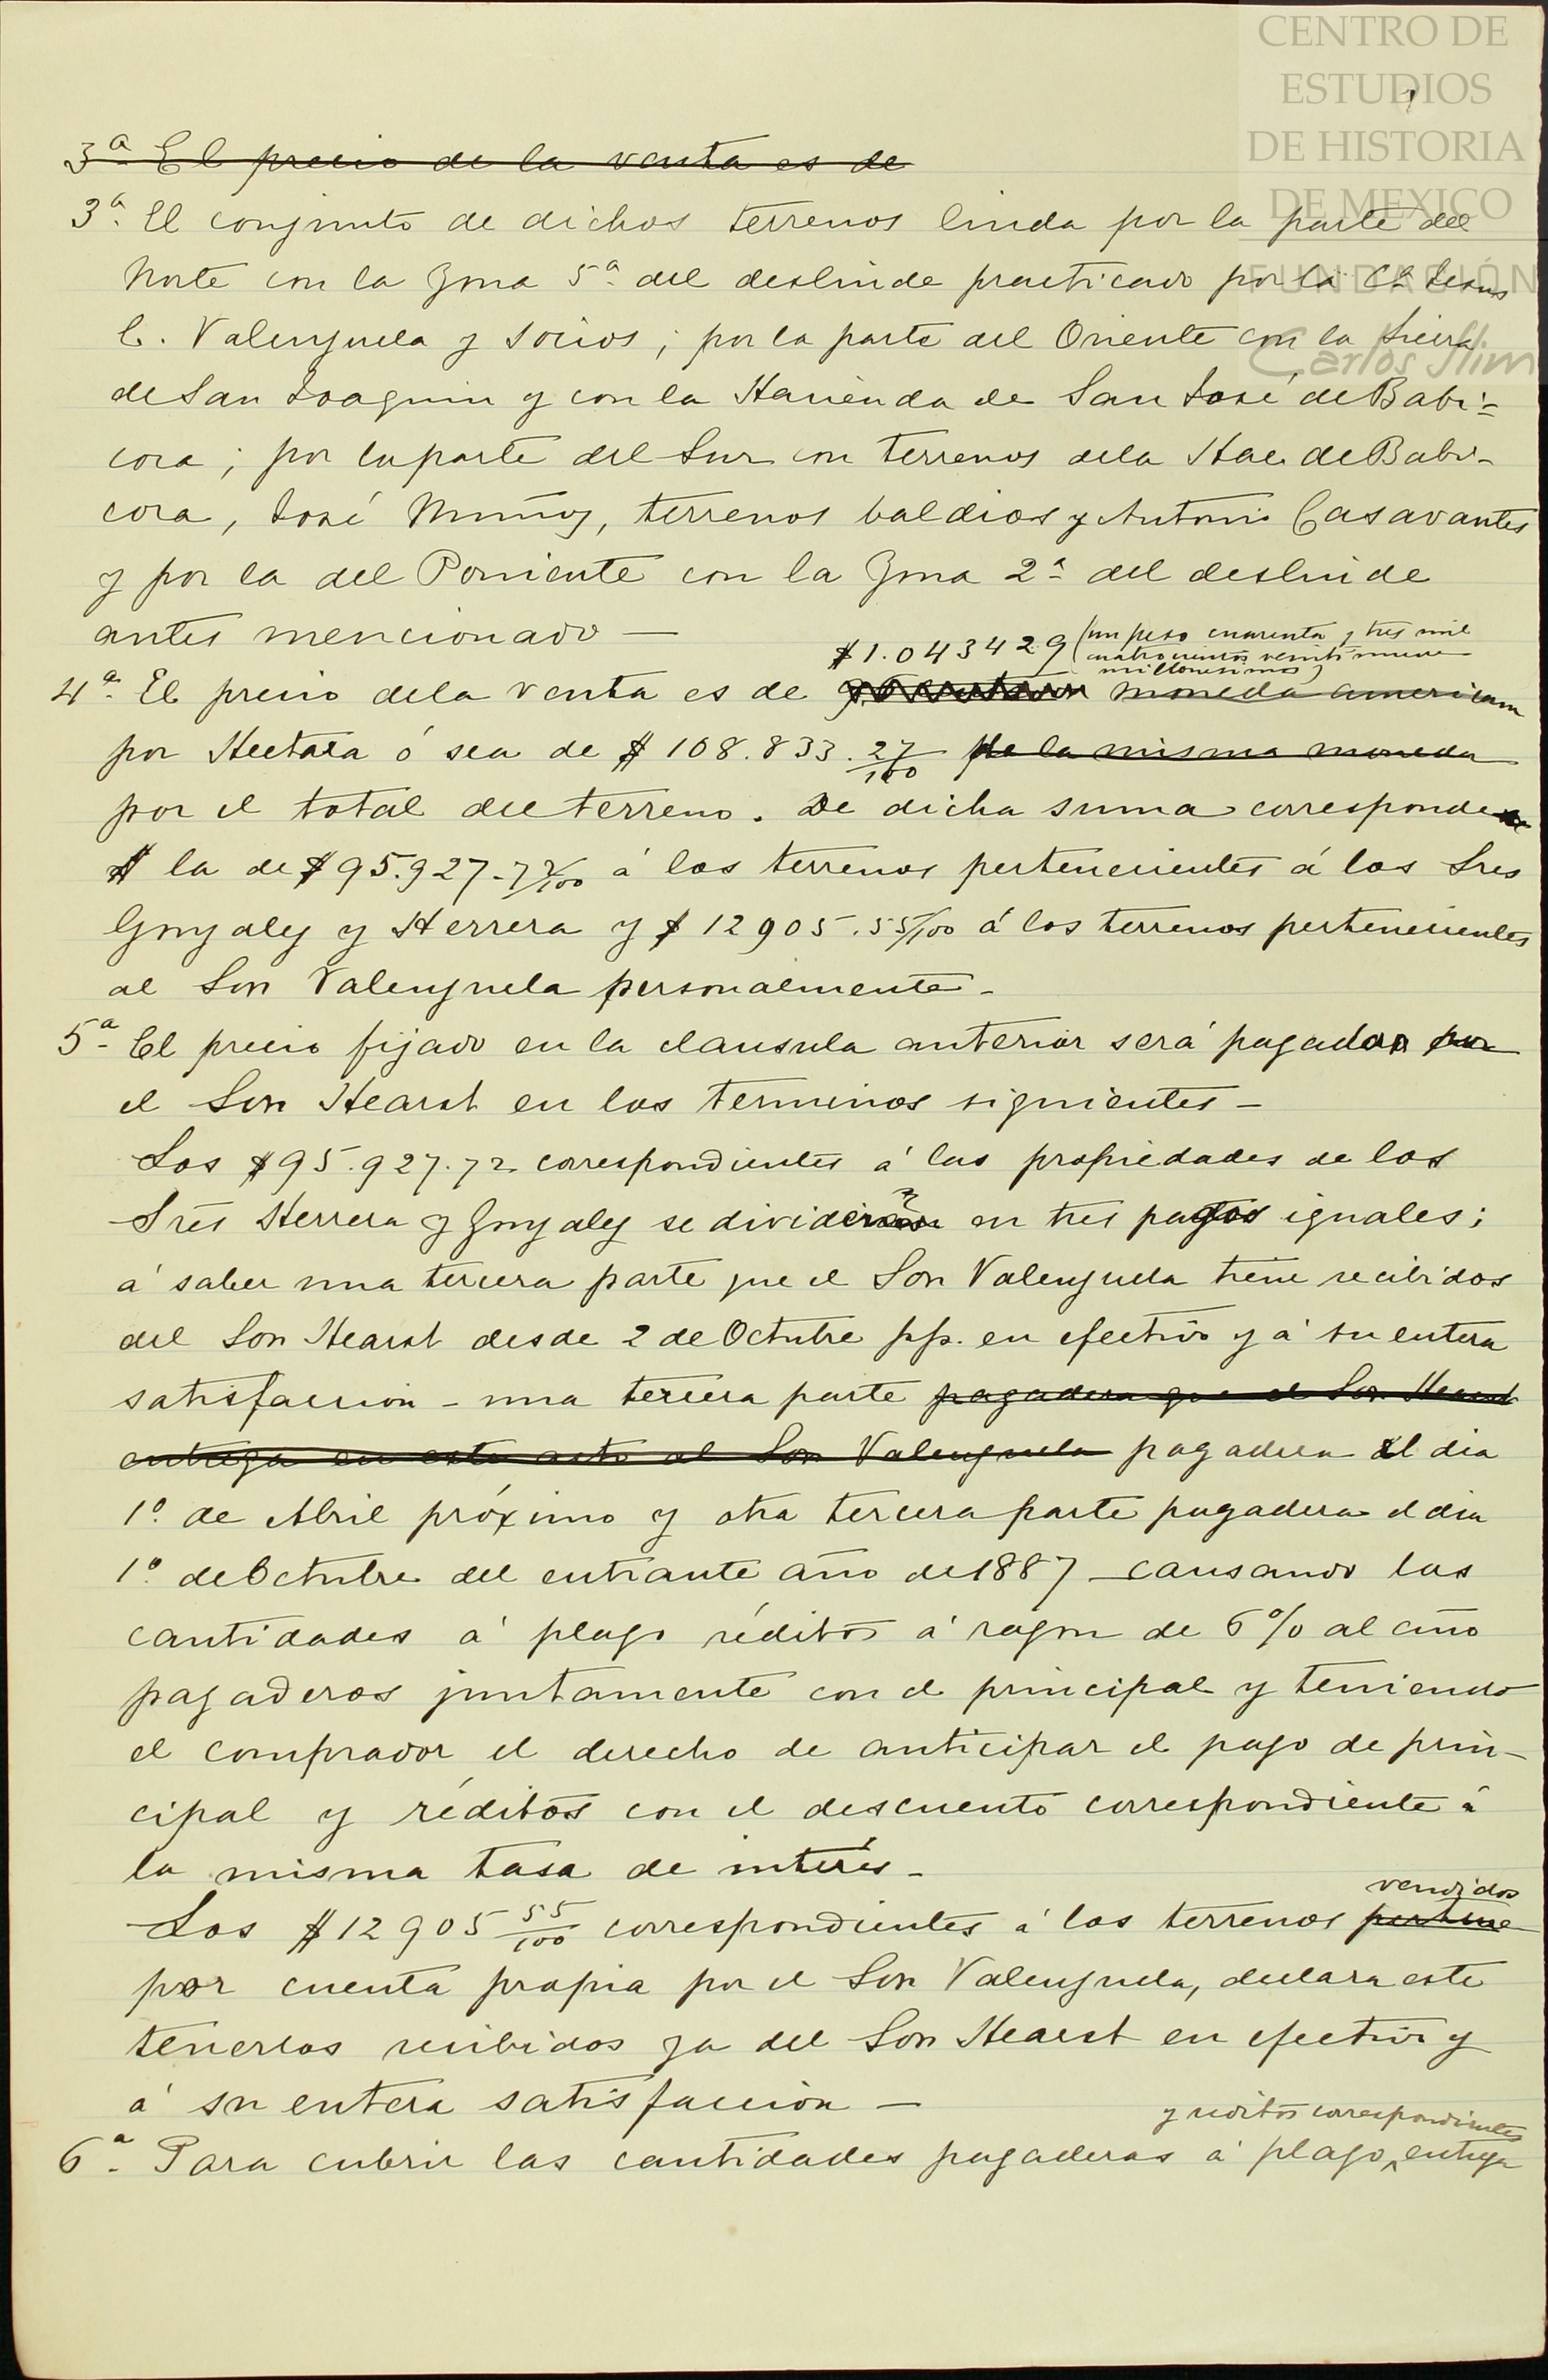 CENTRO DE
ESTUDIOS
DE HISTORIA
DE MEXICO
FUNDACIÓN
Carlos Slim
3ª El precio de la venta es de
3ª El conjunto de dichos terrenos linda por la parte del
Norte con la Zona 5ª del deslinde practicado por la Cª Jesus
E. Valenzuela y Socios; por la parte del Oriente con la Sierra
de San Joaquin y con la Hacienda de San José de Babi=
cora; por la parte del Sur con terrenos de la Hac. de Babi-
cora, José Muñoz, terrenos baldios y Antonio Casavantes
y por la del Poniente con la Zona 2ª del deslinde
antes mencionado —
$1.043429 (un peso cuarenta y tres mil
cuatrocientos veinti nueve
millonesimos)
4ª El precio de la venta es de moneda americana
por Hectara ó sea de $108.833.27/100 de la misma moneda
por el total del terreno. De dicha suma corresponde
la de $95.927-72/100 á los terrenos pertenecientes á los Sres
Gonzalez y Herrera y $12905.55/100 á los terrenos pertenecientes
al Sor Valenzuela personalmente-
5ª El precio fijado en la clausula anterior será pagado por
el Sor Hearst en los terminos siguientes-
Los $95.927.72 correspondientes á las propiedades de los
Sres Herrera y Gonzalez se dividirán en tres pagos iguales;
á saber una tercera parte que el Sor Valenzuela tiene recibidos
del Sor Hearst desde 2 de Octubre pp. en efectivo y á su entera
satisfaccion - una tercera parte pagadera que el Sor Hearst
entrega en este acto al Sor Valenzuela pagadera el dia
1º de Abril próximo y otra tercera parte pagadera el dia
1º de Octubre del entrante año de 1887 - causando las
cantidades á plazo réditos á razon de 6% al año
pagaderos juntamente con el principal y teniendo
el comprador el derecho de anticipar el pago de prin-
cipal y réditos con el descuento correspondiente á
la misma tasa de interés-
vendidos
Los $12905 55/100 correspondientes á los terrenos pertene
por cuenta propia por el Sor Valenzuela, declara este
tenerlos recibidos ya del Sor Hearst en efectivo y
á su entera satisfaccion —
y reditos correspondientes
6ª Para cubrir las cantidades pagaderas á plazo, entrega